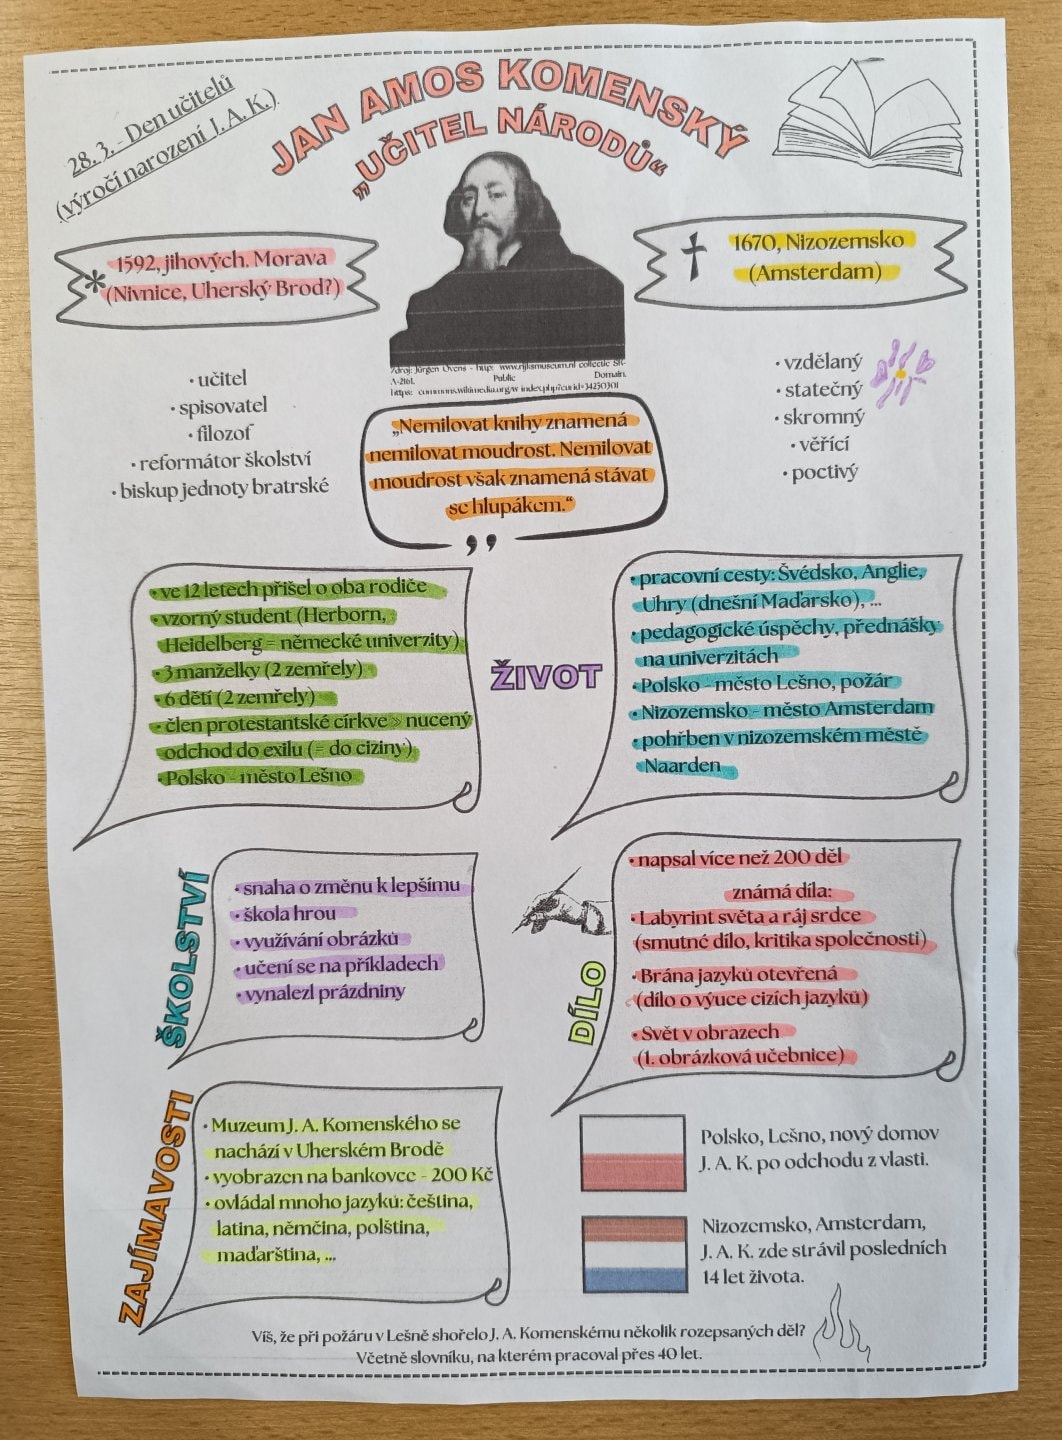 28. 3. - Den učitelů
(výročí narození J. A. K.)
JAN AMOS KOMENSKÝ
„UČITEL NÁRODŮ“
* 1592, jihových. Morava
(Nivnice, Uherský Brod?)
† 1670, Nizozemsko
(Amsterdam)
Zdroj: Jürgen Ovens - http: www.rijksmuseum.nl collectie SK-
A-2161, Public Domain,
https: commons.wikimedia.org/w index.php?curid=34250301
• učitel
• spisovatel
• filozof
• reformátor školství
• biskup jednoty bratrské
„Nemilovat knihy znamená
nemilovat moudrost. Nemilovat
moudrost však znamená stávat
se hlupákem.“
• vzdělaný
• statečný
• skromný
• věřící
• poctivý
• ve 12 letech přišel o oba rodiče
• vzorný student (Herborn,
Heidelberg = německé univerzity)
• 3 manželky (2 zemřely)
• 6 dětí (2 zemřely)
• člen protestantské církve » nucený
odchod do exilu (= do ciziny)
• Polsko - město Lešno
ŽIVOT
• pracovní cesty: Švédsko, Anglie,
Uhry (dnešní Maďarsko), ...
• pedagogické úspěchy, přednášky
na univerzitách
• Polsko - město Lešno, požár
• Nizozemsko - město Amsterdam
• pohřben v nizozemském městě
Naarden
ŠKOLSTVÍ
• snaha o změnu k lepšímu
• škola hrou
• využívání obrázků
• učení se na příkladech
• vynalezl prázdniny
DÍLO
• napsal více než 200 děl
známá díla:
• Labyrint světa a ráj srdce
(smutné dílo, kritika společnosti)
• Brána jazyků otevřená
(dílo o výuce cizích jazyků)
• Svět v obrazech
(1. obrázková učebnice)
ZAJÍMAVOSTI
• Muzeum J. A. Komenského se
nachází v Uherském Brodě
• vyobrazen na bankovce - 200 Kč
• ovládal mnoho jazyků: čeština,
latina, němčina, polština,
maďarština, ...
Polsko, Lešno, nový domov
J. A. K. po odchodu z vlasti.
Nizozemsko, Amsterdam,
J. A. K. zde strávil posledních
14 let života.
Víš, že při požáru v Lešně shořelo J. A. Komenskému několik rozepsaných děl?
Včetně slovníku, na kterém pracoval přes 40 let.